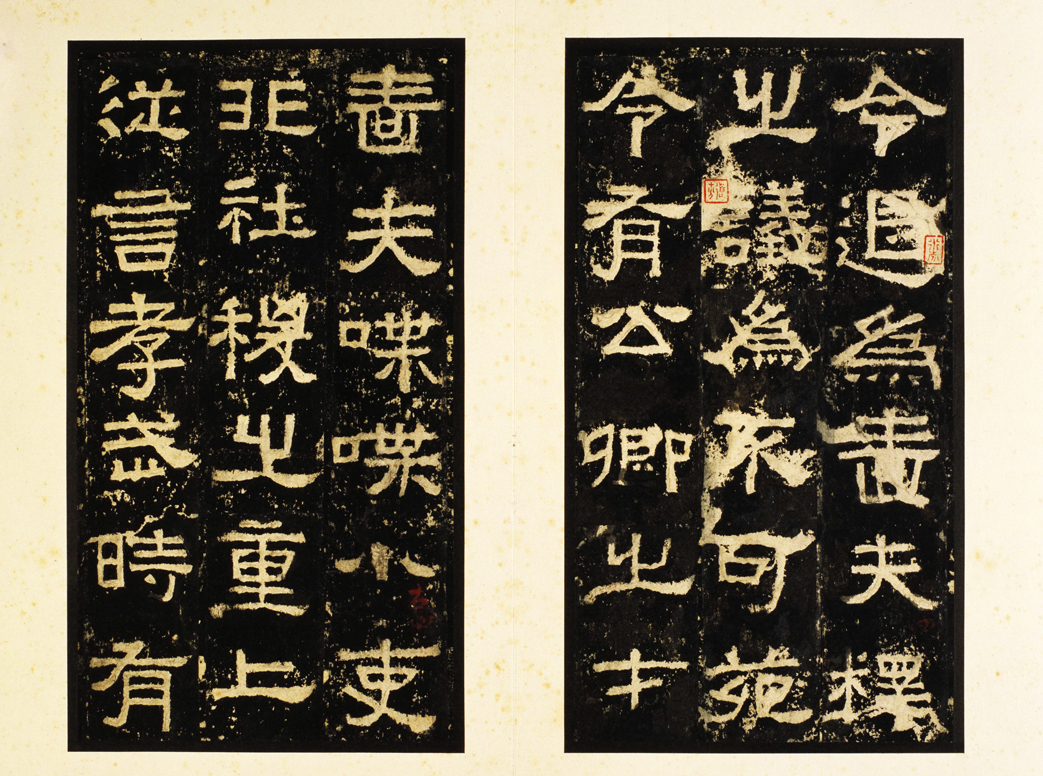 令退為嗇夫釋
之議為不可苑
令有公卿之才
嗇夫喋喋小吏
非社稷之重上
從言孝武時有